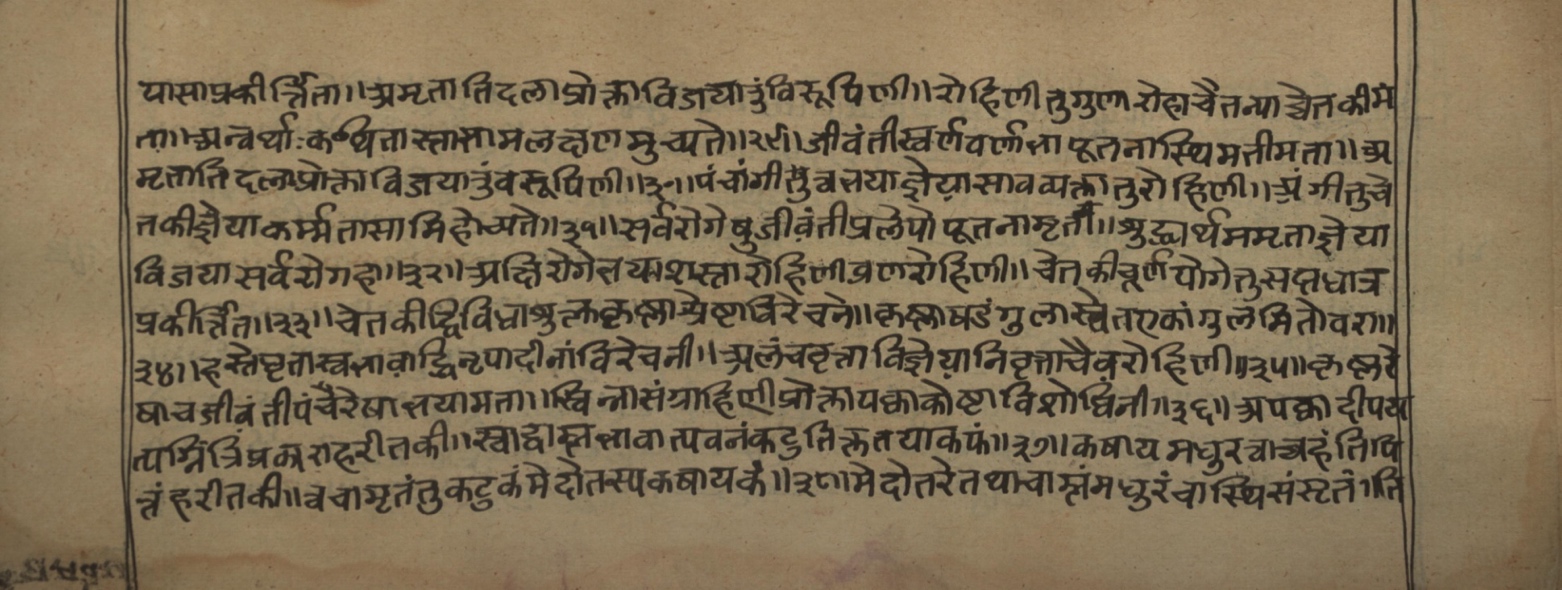 यासाप्रकीर्त्तिता।।अमृतातिदलाप्रोक्ताविजयातुंविरूपिणी।।रोहिणीतुगुणारोहाचैतन्याच्चेतकीमं
ता।।अन्वर्थाःकथितास्तासामलक्षणमुच्यते।।२९।।जीवंतीस्वर्णवर्णाभापूतनास्थिमतीमता।।अ
मृतातिदलाप्रोक्ताविजयातुंवरूपिणी।।३०।।पंचांगीतुवभयाज्ञेयासावव्यक्तातुरोहिणी।।त्र्यंगीतुचे
तकीज्ञेयाकर्म्मतासामिहोच्यते।।३१।।सर्वरोगेषुजीवंतीप्रलेपोपूतनामृता।।शुद्ध्यार्थममृताज्ञेया
विजयासर्वरोगहा।।३२।।अक्षिरोगेभयाशस्तारोहिणीव्रणरोहिणी।।चेतकीचूर्णयोगेतुसप्तधात्र
प्रकीर्त्तिता।।३३।।चेतकीद्विविधाशुक्लाकृष्णाश्रेष्टाविरेचने।।कृष्णाषडंगुलास्वेतएकांगुलमितोवरा।।
३४।।हस्तेधृतास्वभावाद्धिनृपादीनांविरेचनी।।अलंचवृत्ताविज्ञेयानिवृत्ताचैवरोहिणी।।३५।।कृष्णरे
षाचजीवंतीपंचैरेषाभयामता।।स्विन्नासंग्राहिणीप्रोक्तापक्वाकोष्टाविशोधिनी।।३६।।अपक्वादीपय
त्यग्निंत्रिंप्रकाराहरीतकी।।स्वाद्वाम्लभावात्पवनंकटुतिक्ततयाकफं।।३७।।कषायमधुरत्वाच्चहंतिपि
त्तंहरीतकी।।त्वचामृतंतुकटुकंमेदोतस्यकषायकं।।३८।।मेदोतरेतथाचाम्लंमधुरंचास्थिसंसृतं।।ति